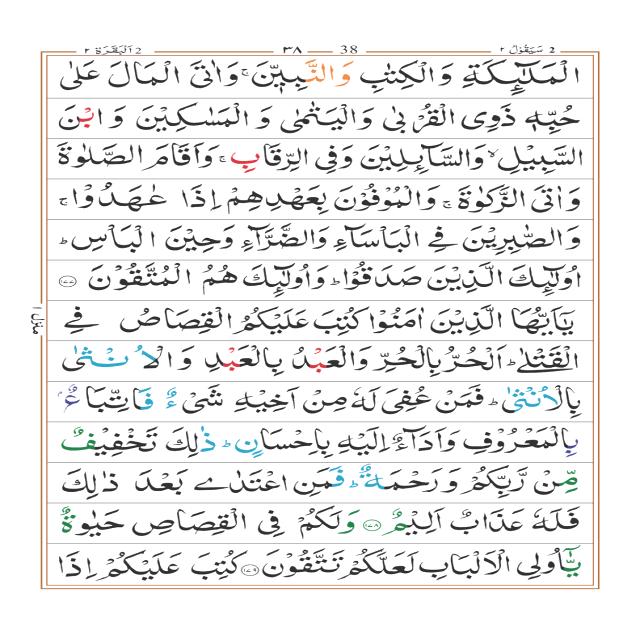 2 سَيَقُوْلُ ٢ 38 ٣٨ 2 اَلْبَقَرَة ٢
الْمَلٰٓئِكَةِ وَالْكِتٰبِ وَالنَّبِيّٖنَ ۚ وَاٰتَى الْمَالَ عَلٰى
حُبِّهٖ ذَوِى الْقُرْبٰى وَالْيَتٰمٰى وَالْمَسٰكِيْنَ وَابْنَ
السَّبِيْلِ ۙ وَالسَّآئِلِيْنَ وَفِى الرِّقَابِ ۚ وَاَقَامَ الصَّلٰوةَ
وَاٰتَى الزَّكٰوةَ ۚ وَالْمُوْفُوْنَ بِعَهْدِهِمْ اِذَا عٰهَدُوْا ۚ
وَالصّٰبِرِيْنَ فِى الْبَاْسَآءِ وَالضَّرَّآءِ وَحِيْنَ الْبَاْسِ ؕ
اُولٰٓئِكَ الَّذِيْنَ صَدَقُوْا ؕ وَاُولٰٓئِكَ هُمُ الْمُتَّقُوْنَ ﴿١٧٧﴾
يٰٓاَيُّهَا الَّذِيْنَ اٰمَنُوْا كُتِبَ عَلَيْكُمُ الْقِصَاصُ فِى
الْقَتْلٰى ؕ اَلْحُرُّ بِالْحُرِّ وَالْعَبْدُ بِالْعَبْدِ وَالْاُنْثٰى
بِالْاُنْثٰى ؕ فَمَنْ عُفِىَ لَهٗ مِنْ اَخِيْهِ شَىْءٌ فَاتِّبَاعٌ ۢ
بِالْمَعْرُوْفِ وَاَدَآءٌ اِلَيْهِ بِاِحْسَانٍ ؕ ذٰلِكَ تَخْفِيْفٌ
مِّنْ رَّبِّكُمْ وَرَحْمَةٌ ؕ فَمَنِ اعْتَدٰى بَعْدَ ذٰلِكَ
فَلَهٗ عَذَابٌ اَلِيْمٌ ﴿١٧٨﴾ وَلَكُمْ فِى الْقِصَاصِ حَيٰوةٌ
يّٰٓاُولِى الْاَلْبَابِ لَعَلَّكُمْ تَتَّقُوْنَ ﴿١٧٩﴾ كُتِبَ عَلَيْكُمْ اِذَا
منزل ١